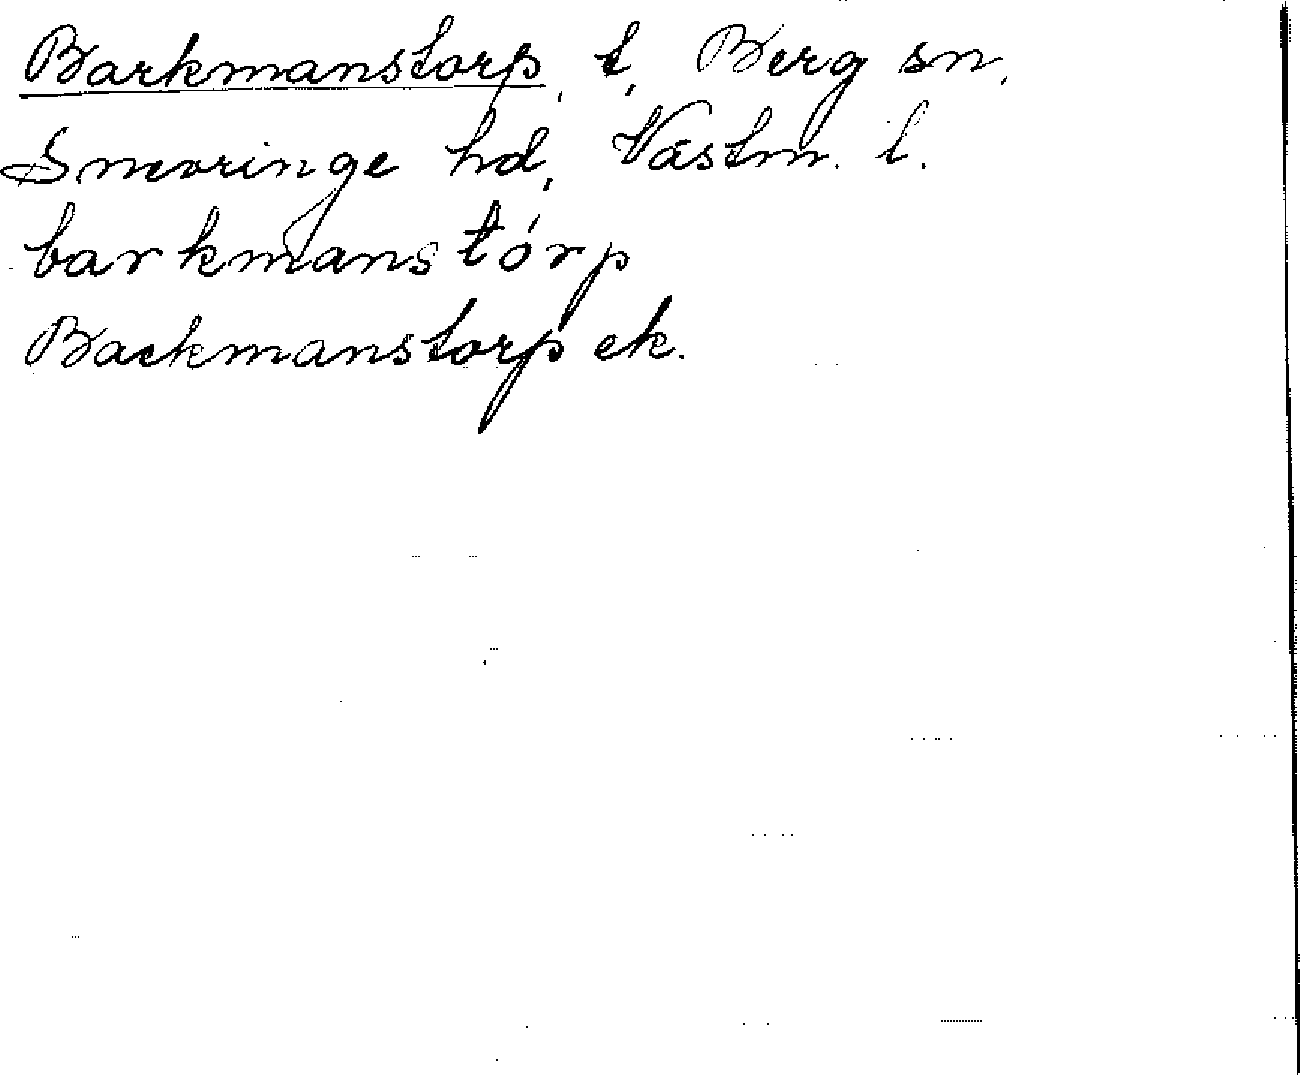 Barkmanstorp, t, Berg sn.
Snevringe hd, Västm. l.
barkmanstórp
Backmanstorp ek.